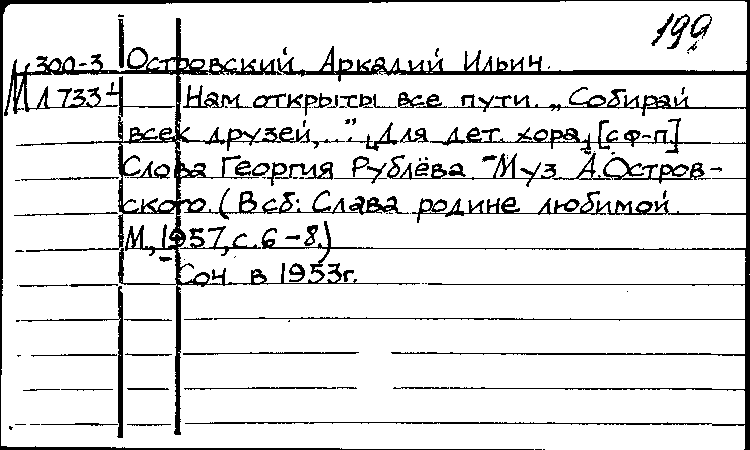 199
М 300-3 Островский, Аркадий Ильич.
Л 733 Нам открыты все пути. „Собирай
всех друзей,..." [Для дет. хора] [с ф-п]
Слова Георгия Рублёва. Муз А. Остров-
ского. (В сб: Слава родине любимой.
М., 1957, с. 6-8.)
Соч. в 1953г.